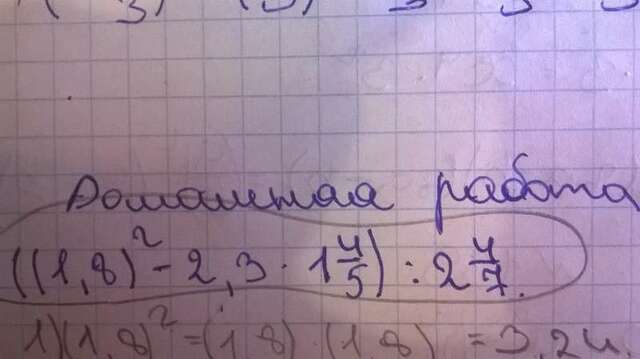 Домашняя работа
((1,8)² - 2,3 · 1 4/5) : 2 4/7.
1)(1,8)² = (1,8) · (1,8) = 3,24.